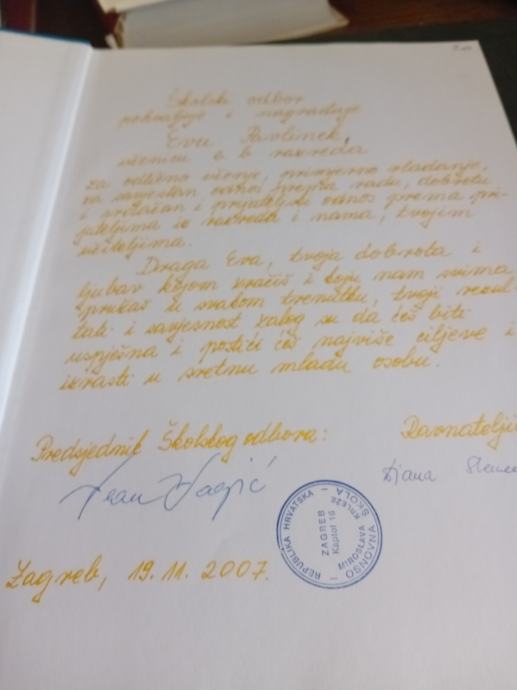 Školski odbor
pohvaljuje i nagrađuje
Evu Pavlinek,
učenicu 6. b razreda
za odlično učenje, primjerno vladanje,
na savjestan odnos prema radu, dobrotu
i srdačan i prijateljski odnos prema pri-
jateljima iz razreda i nama, tvojim
učiteljima.
Draga Eva, tvoja dobrota i
ljubav kojom zračiš i koju nam svima
pružaš u svakom trenutku, tvoji rezul
tati i savjesnost zalog su da ćeš biti
uspješna i postići ćeš najviše ciljeve i
izrasti u sretnu mladu osobu.
Predsjednik Školskog odbora:
Ravnatelji
Djana
REPUBLIKA HRVATSKA
OSNOVNA ŠKOLA
MIROSLAVA KRLEŽE
ZAGREB
Kaptol 16
Zagreb, 19. 11. 2007.